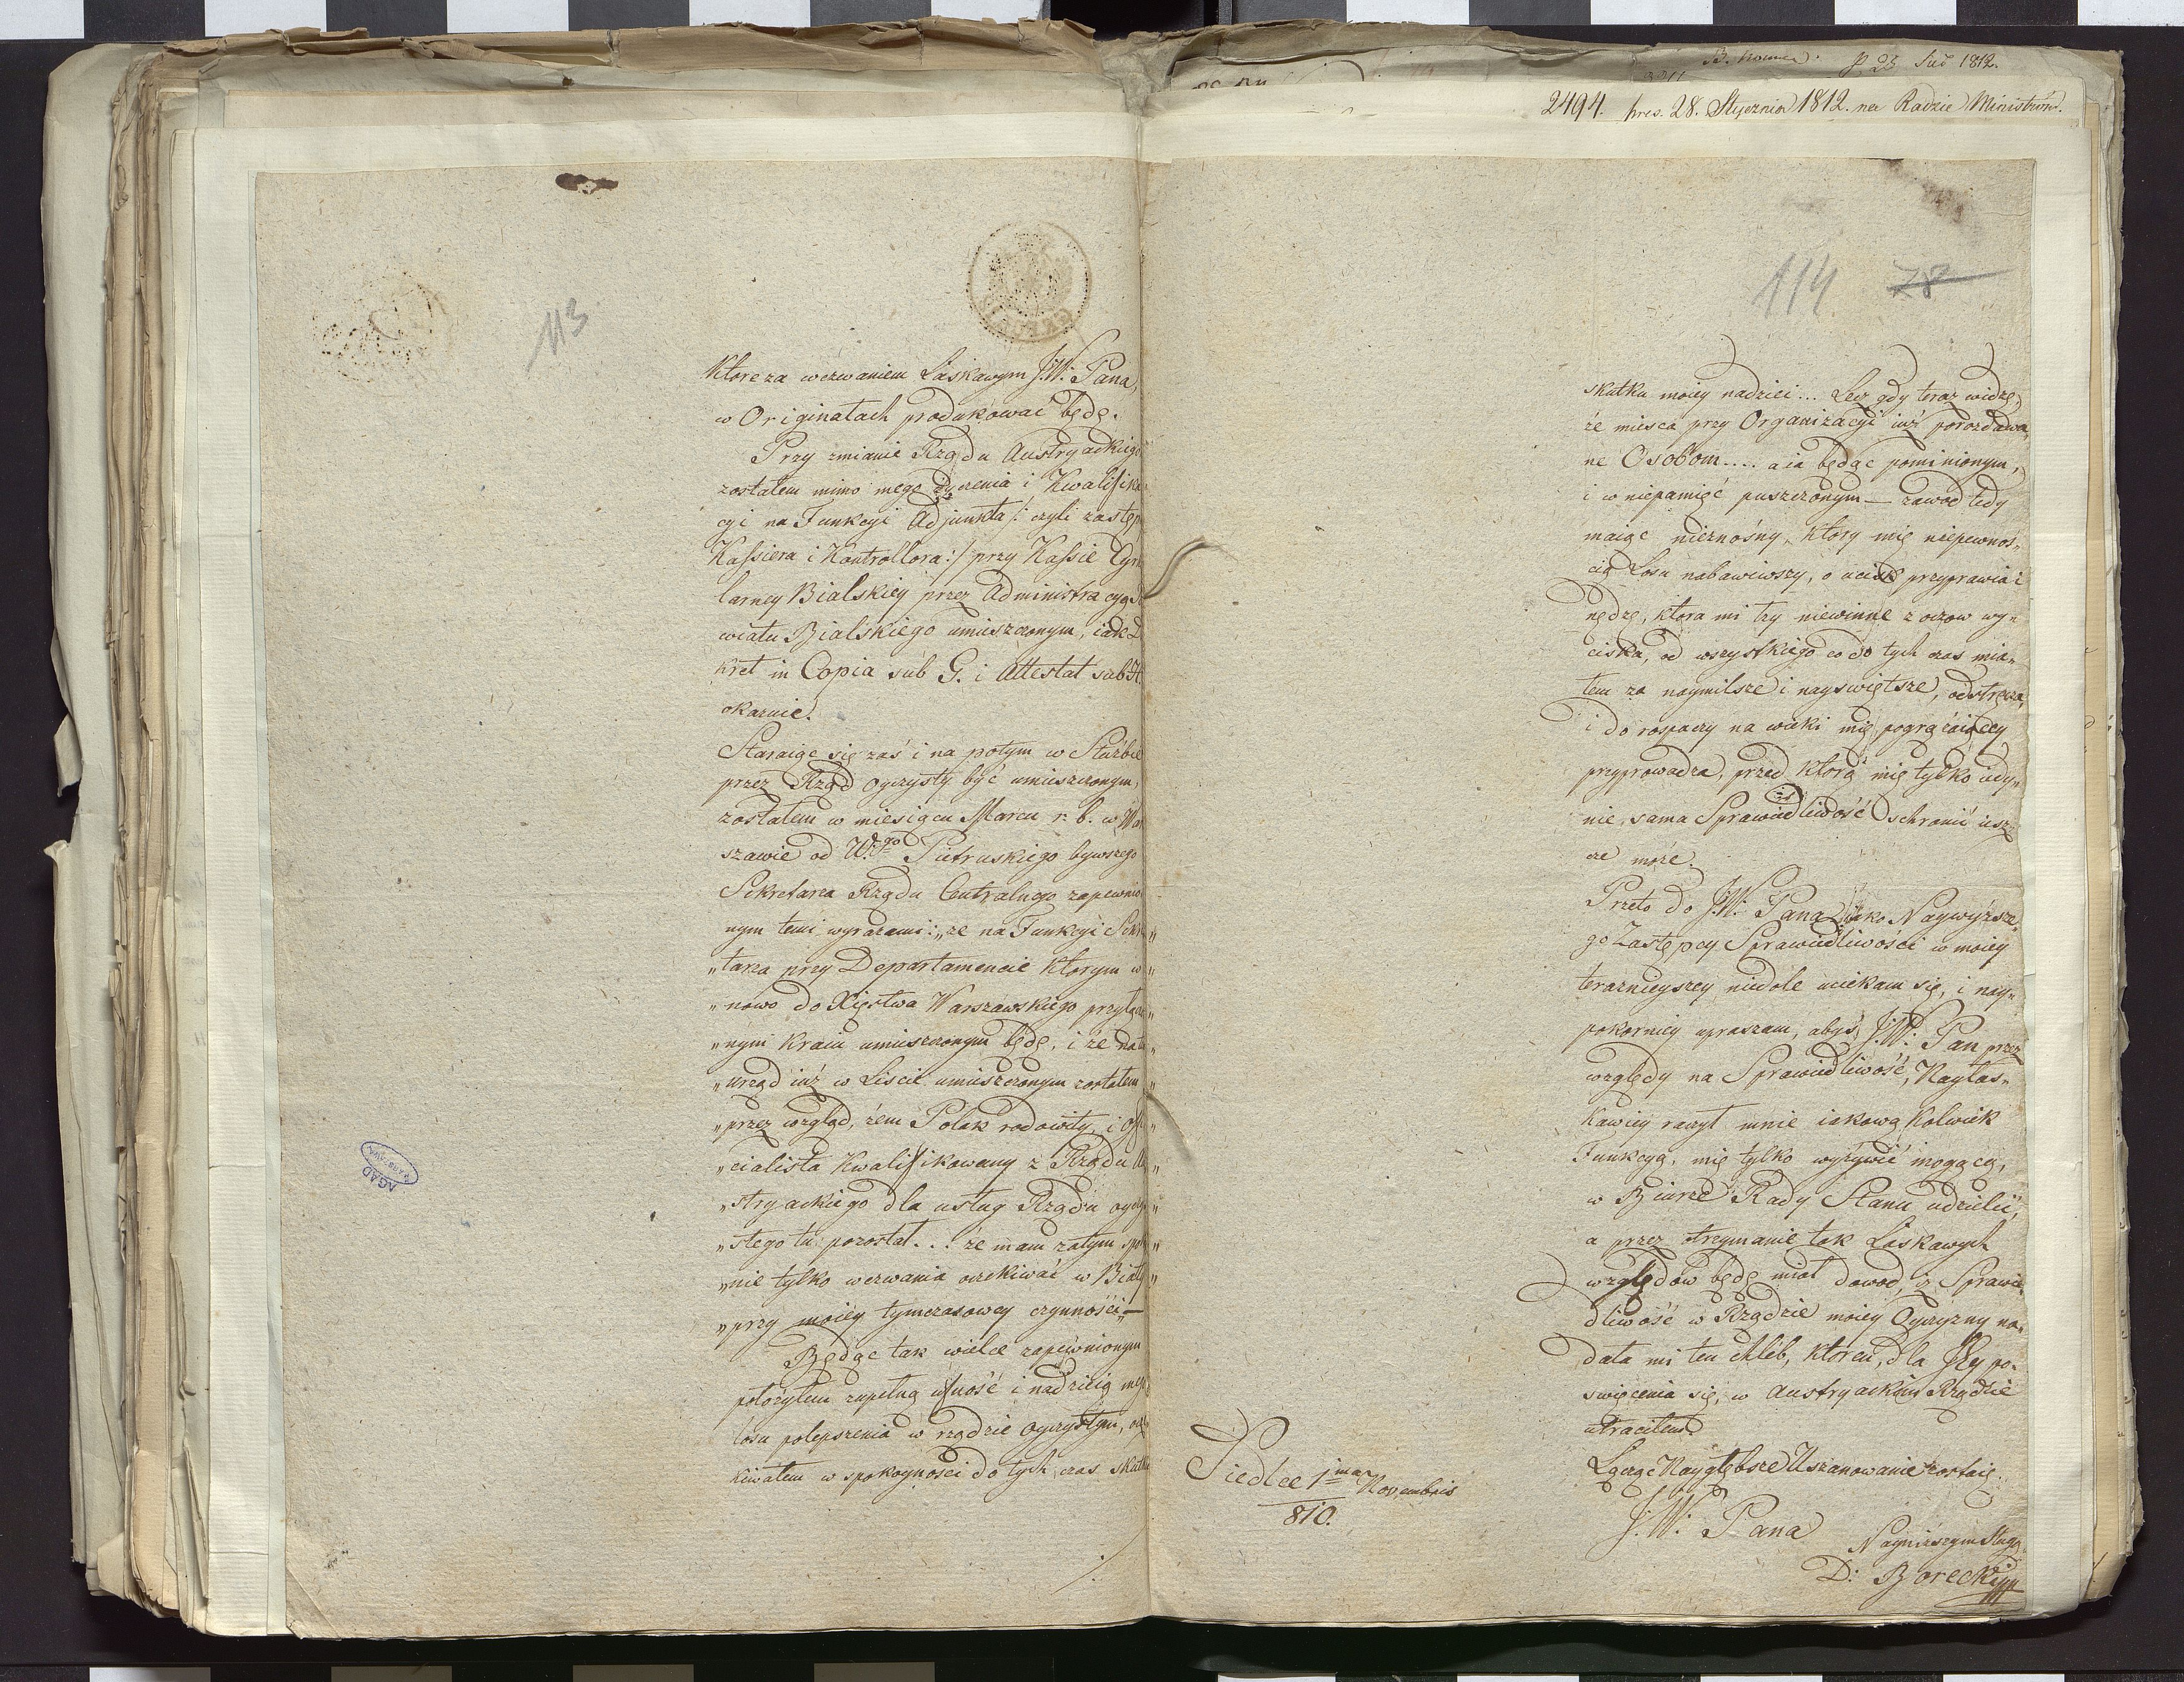 113
Ktore za wezwaniem Łaskawym J.W. Pana,
w Originałach produkować będę.
Przy zmianie Rządu Austryackiego
zostałem mimo mego życzenia i Kwalifika
cyi na Funkcyi Adjunkta /: czyli zastęp
Kassiera i Kontrollora :/ przy Kassie Cyrku
larney Bialskiey przez Administracyą Po
wiatu Bialskiego umieszczonym, iak De
kret in Copia sub G. i Attestat sub H
okazuie.
Staraiąc się zaś i na potym w Służbie
przez Rząd oyczysty być umieszczonym,
zostałem w miesiącu Marcu r: b: w War
szawie od W.go Pietruskiego bywszego
Sekretarza Rządu Centralnego zapewnio
nym temi wyrazami: „że na Funkcyi Sekre„
„tarza przy Departamencie Ktorym w„
„nowo do Xięstwa Warszawskiego przyłączo„
„nym Kraiu umieszczonym będę, i że na ten„
„urząd iuż w Liscie umieszczonym zostałem„
„przez wzgląd, żem Polak rodowity, i offi„
„cialista Kwalifikowany z Rządu Au„
„stryackiego dla usług Rządu oyczy„
„stego tu pozostał... że mam zatym spokoy„
„nie tylko wezwania oczekiwać w Biały„
„przy moiey tymczasowey czynności„ —
Będąc tak wielce zapewnionym
położyłem zupełną ufność i nadzieią mego
losu polepszenia w rządzie oyczystym, ocze
kiwałem w spokoyności do tych czas skutku
AGAD
WARSZAWA
B. Nomin. p 23 Lud 1812.
2494. pres. 28. Stycznia 1812. na Radzie Ministrów.
114 78
skutku moiey nadziei... Lecz gdy teraz widzę,
że miesca przy Organizacyi iuż porozdawa„
ne Osobom.... a ia będąc pominionym,
i w niepamięć puszczonym — zawod tedy
maiąc nieznośny, ktory mię niepewnoś„
cią Losu nabawiwszy, o ucisk przyprawia i
nędzę, ktora mi łzy niewinne z oczow wy„
ciska, od wszystkiego co do tych czas mia„
łem za naymilsze i nayswiętsze, odstręcza,
i do rospaczy na wieki mię pogrążaiącey
przyprowadza, przed Ktorą mię tylko iedy„
nie sama Sprawiedliwość schronić iesz
cze może.
Przeto do J.W. Pana iako Naywyższe„
go Zastępcy Sprawiedliwości w moiey
teraznieyszey niedole uciekam się, i nay„
pokorniey upraszam, abyś J.W. Pan przez
względy na Sprawiedliwość, Nayłas„
kawiey raczył mnie iakową Kolwiek
Funkcyą, mię tylko wyżywić mogącą,
w Biurze Rady Stanu udzielić,
a przez otrzymanie tak Łaskawych
względów będę miał dowod, iż Sprawie„
dliwość w Rządzie moiey Oyczyzny na„
dała mi ten chleb, ktoren, dla Jey po„
swięcenia się, w Austryackim Rządzie
utraciłem.
Łącząc Naygłębsze Uszanowanie zostaię.
J.W. Pana
Nayniższym Sługą
D: Borecki
Siedlce 1ma Novembris
810.